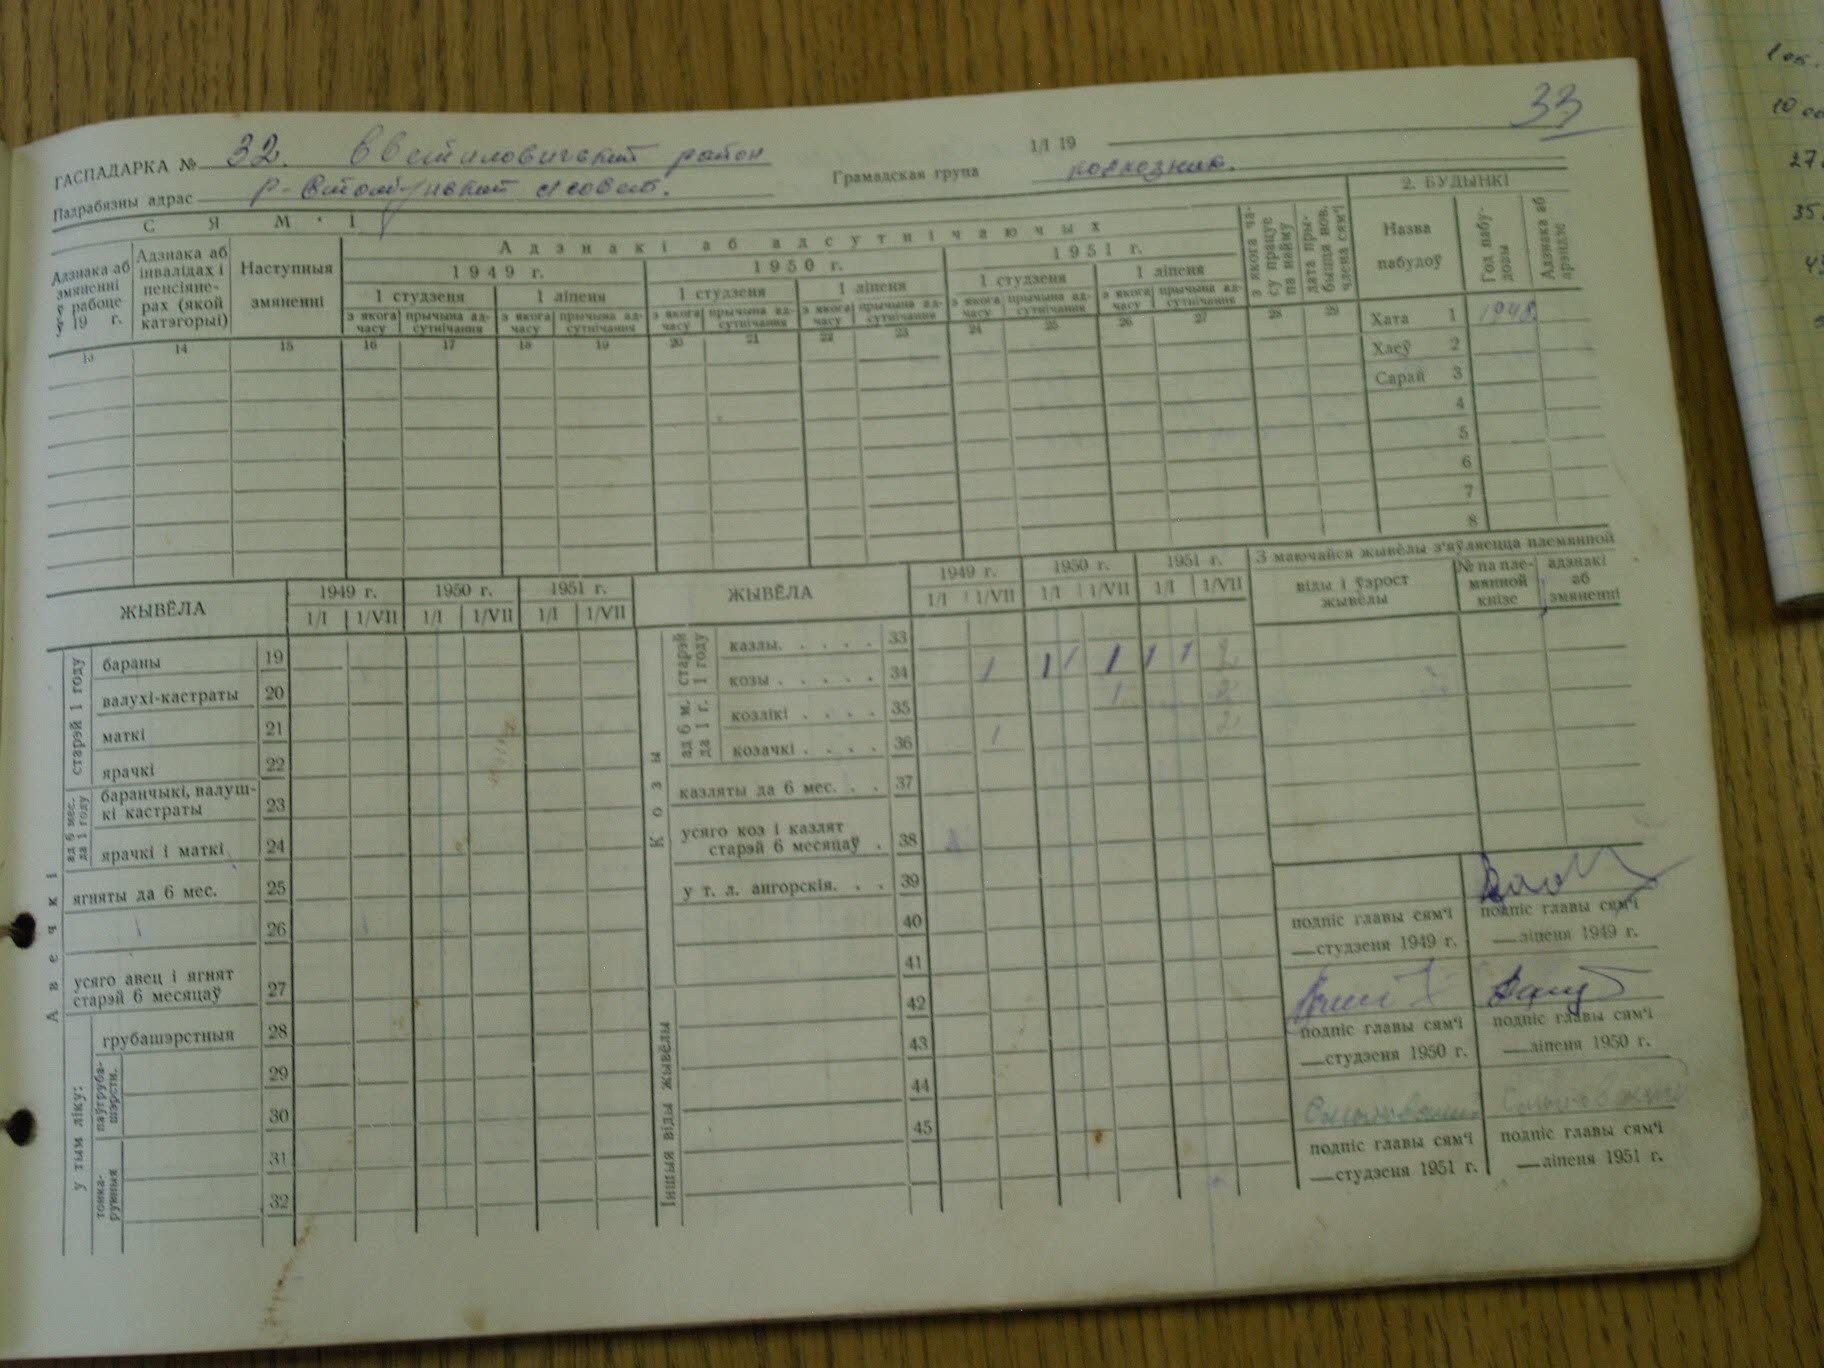 33
ГАСПАДАРКА № 32. район
1/I 19
Падрабязны адрас
Грамадская група колхозник.
С Я М ' І
2. БУДЫНКІ
Адзнакі аб адсутнічаючых
Адзнака аб змяненні ў рабоце ў 19 г.
Адзнака аб інвалідах і пенсіяне-рах (якой катэгорыі)
Наступныя змяненні
1949 г. 1950 г. 1951 г.
1 студзеня 1 ліпеня 1 студзеня 1 ліпеня 1 студзеня 1 ліпеня
з якога часу прычына ад-сутнічання з якога часу прычына ад-сутнічання з якога часу прычына ад-сутнічання з якога часу прычына ад-сутнічання з якога часу прычына ад-сутнічання з якога часу прычына ад-сутнічання
з якога ча-су працуе па найму
дата пры-быцця нов. члена сям'і
Назва пабудоў
Год пабу-довы
Адзнака аб арэндзе
13 14 15 16 17 18 19 20 21 22 23 24 25 26 27 28 29
Хата 1 1948
Хлеў 2
Сарай 3
4
5
6
7
8
ЖЫВЁЛА
1949 г. 1950 г. 1951 г.
1/I 1/VII 1/I 1/VII 1/I 1/VII
Авечкі
старэй 1 году
бараны 19
валухі-кастраты 20
маткі 21
ярачкі 22
ад 6 мес. да 1 году
баранчыкі, валуш-
кі кастраты 23
ярачкі і маткі 24
ягняты да 6 мес. 25
26
усяго авец і ягнят
старэй 6 месяцаў 27
у тым ліку:
грубашэрстныя 28
паўгруба-шэрсти.
29
30
тонка-рунныя
31
32
ЖЫВЁЛА
1949 г. 1950 г. 1951 г.
1/I 1/VII 1/I 1/VII 1/I 1/VII
Козы
старэй 1 году
казлы. . . . . 33
козы . . . . . 34 1 1 1 1 1 1 2
ад 6 м. да 1 г.
козлікі . . . . 35 1 2
козачкі . . . . 36 1 2
казляты да 6 мес. . . 37
усяго коз і казлят
старэй 6 месяцаў . 38
у т. л. ангорскія. . . 39
40
41
Іншыя віды жывёлы
42
43
44
45
З маючайся жывёлы з'яўляецца племянной
віды і ўзрост жывёлы
№ па пле-мянной кнізе
адзнакі аб змяненні
подпіс главы сям'і
—студзеня 1949 г.
подпіс главы сям'і
—ліпеня 1949 г.
подпіс главы сям'і
—студзеня 1950 г.
подпіс главы сям'і
—ліпеня 1950 г.
подпіс главы сям'і
—студзеня 1951 г.
подпіс главы сям'і
—ліпеня 1951 г.